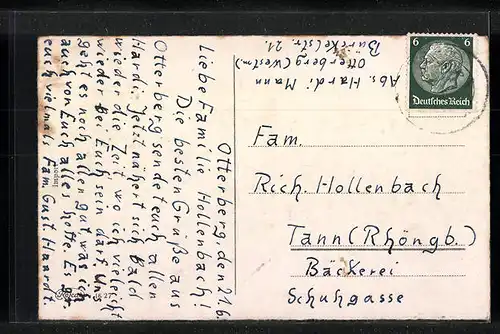 Otterberg, den 21.6.
Liebe Familie Hollenbach!
Die besten Grüße aus
Otterberg sendet euch allen
Hardi. Jetzt nähert sich bald
wieder die Zeit wo ich vielleicht
wieder bei Euch sein darf. Uns
geht es noch allen gut, was ich
auch von Euch alles hoffe. Es gr.
euch vielmals Fam. Gust. Haardt
Abs. Hardi Mann
Otterberg (Westm.)
Bürckelstr. 21.
6 6
Deutsches Reich
Fam.
Rich. Hollenbach
Tann (Rhöngb.)
Bäckerei
Schuhgasse